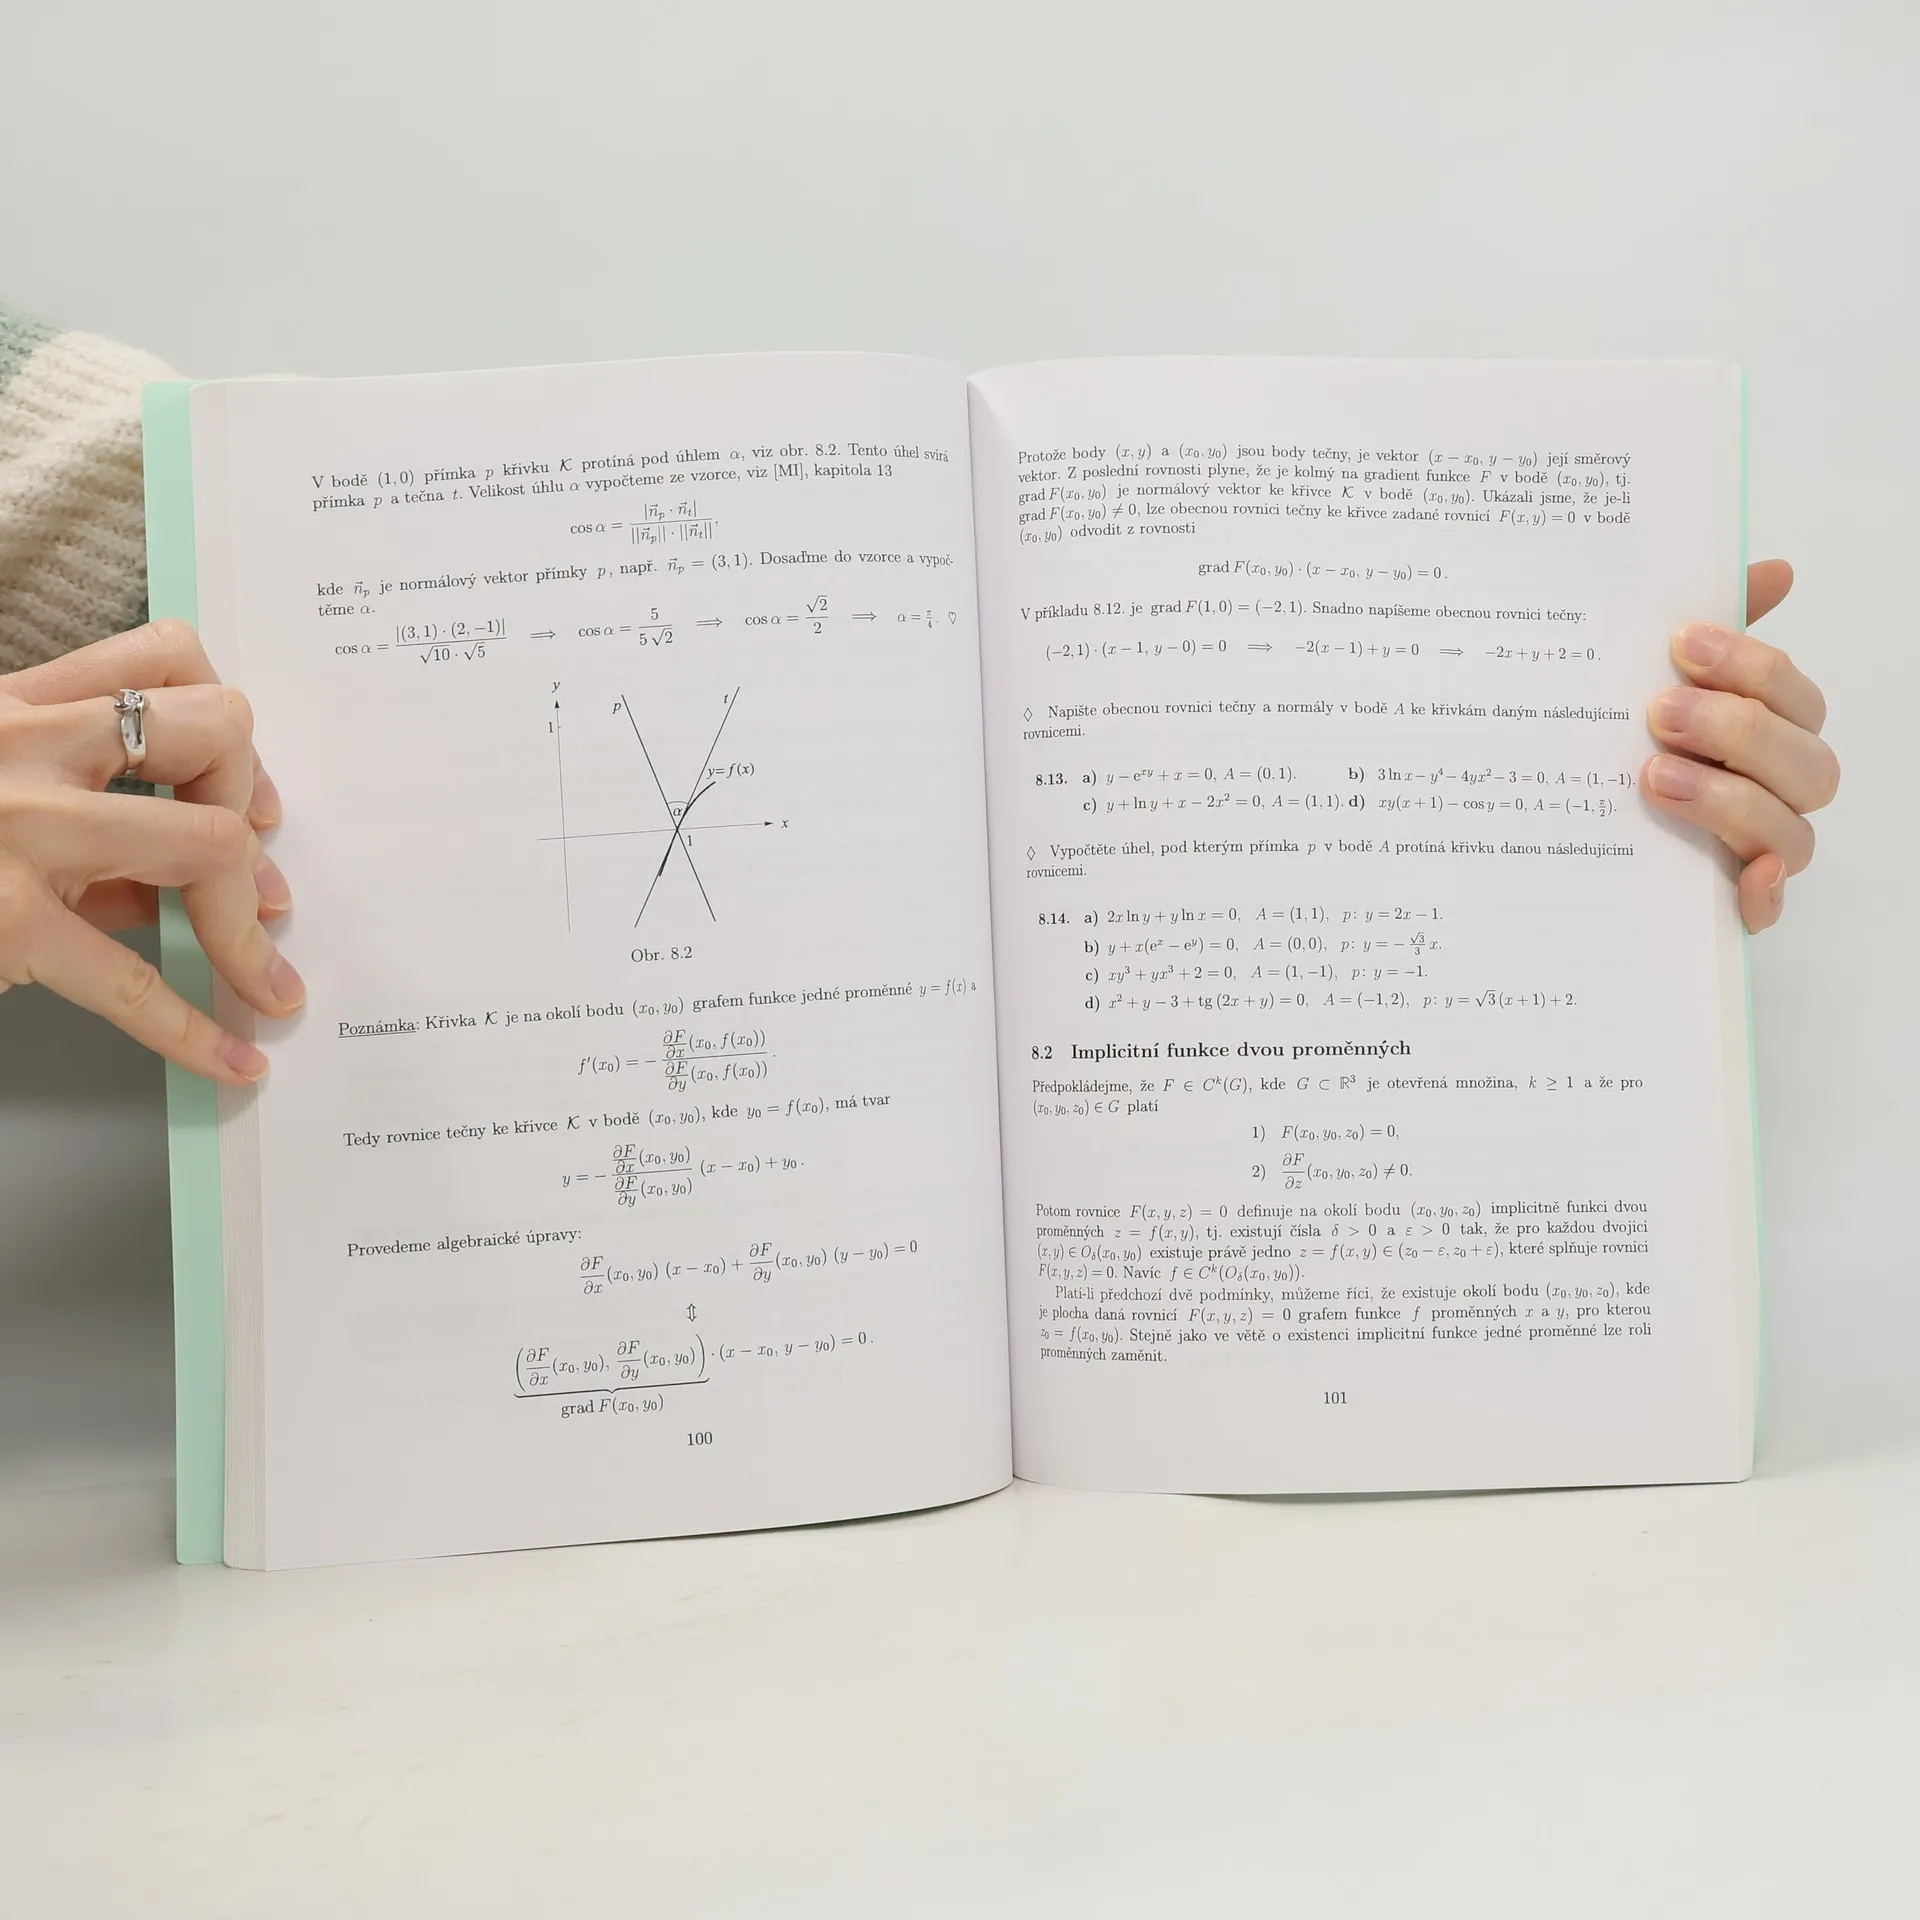 V bodě (1,0) přímka p křivku K protíná pod úhlem α, viz obr. 8.2. Tento úhel svírá
přímka p a tečna t. Velikost úhlu α vypočteme ze vzorce, viz [MI], kapitola 13
cos α = |n⃗ₚ · n⃗ₜ| / ||n⃗ₚ|| · ||n⃗ₜ||,
kde n⃗ₚ je normálový vektor přímky p, např. n⃗ₚ = (3,1). Dosaďme do vzorce a vypoč-
těme α.
cos α = |(3,1) · (2,−1)| / √10 · √5 ⟹ cos α = 5 / 5√2 ⟹ cos α = √2 / 2 ⟹ α = π/4. ♡
y
p
t
1
y=f(x)
α
x
1
Obr. 8.2
Poznámka: Křivka K je na okolí bodu (x₀, y₀) grafem funkce jedné proměnné y = f(x) a
f′(x₀) = − ∂F/∂x (x₀, f(x₀)) / ∂F/∂y (x₀, f(x₀)) .
Tedy rovnice tečny ke křivce K v bodě (x₀, y₀), kde y₀ = f(x₀), má tvar
y = − ∂F/∂x (x₀, y₀) / ∂F/∂y (x₀, y₀) (x − x₀) + y₀ .
Provedeme algebraické úpravy:
∂F/∂x (x₀, y₀) (x − x₀) + ∂F/∂y (x₀, y₀) (y − y₀) = 0
⇕
(∂F/∂x (x₀, y₀), ∂F/∂y (x₀, y₀)) · (x − x₀, y − y₀) = 0 .
grad F(x₀, y₀)
100
Protože body (x, y) a (x₀, y₀) jsou body tečny, je vektor (x − x₀, y − y₀) její směrový
vektor. Z poslední rovnosti plyne, že je kolmý na gradient funkce F v bodě (x₀, y₀), tj.
grad F(x₀, y₀) je normálový vektor ke křivce K v bodě (x₀, y₀). Ukázali jsme, že je-li
grad F(x₀, y₀) ≠ 0, lze obecnou rovnici tečny ke křivce zadané rovnicí F(x, y) = 0 v bodě
(x₀, y₀) odvodit z rovnosti
grad F(x₀, y₀) · (x − x₀, y − y₀) = 0 .
V příkladu 8.12. je grad F(1, 0) = (−2, 1). Snadno napíšeme obecnou rovnici tečny:
(−2, 1) · (x − 1, y − 0) = 0 ⟹ −2(x − 1) + y = 0 ⟹ −2x + y + 2 = 0 .
◊ Napište obecnou rovnici tečny a normály v bodě A ke křivkám daným následujícími
rovnicemi.
8.13. a) y − eˣʸ + x = 0, A = (0, 1). b) 3 ln x − y⁴ − 4yx² − 3 = 0, A = (1, −1).
c) y + ln y + x − 2x² = 0, A = (1, 1). d) xy(x + 1) − cos y = 0, A = (−1, π/2).
◊ Vypočtěte úhel, pod kterým přímka p v bodě A protíná křivku danou následujícími
rovnicemi.
8.14. a) 2x ln y + y ln x = 0, A = (1, 1), p: y = 2x − 1.
b) y + x(eˣ − eʸ) = 0, A = (0, 0), p: y = − √3/3 x.
c) xy³ + yx³ + 2 = 0, A = (1, −1), p: y = −1.
d) x² + y − 3 + tg (2x + y) = 0, A = (−1, 2), p: y = √3 (x + 1) + 2.
8.2 Implicitní funkce dvou proměnných
Předpokládejme, že F ∈ Cᵏ(G), kde G ⊂ ℝ³ je otevřená množina, k ≥ 1 a že pro
(x₀, y₀, z₀) ∈ G platí
1) F(x₀, y₀, z₀) = 0,
2) ∂F/∂z (x₀, y₀, z₀) ≠ 0.
Potom rovnice F(x, y, z) = 0 definuje na okolí bodu (x₀, y₀, z₀) implicitně funkci dvou
proměnných z = f(x, y), tj. existují čísla δ > 0 a ε > 0 tak, že pro každou dvojici
(x, y) ∈ O_δ(x₀, y₀) existuje právě jedno z = f(x, y) ∈ (z₀ − ε, z₀ + ε), které splňuje rovnici
F(x, y, z) = 0. Navíc f ∈ Cᵏ(O_δ(x₀, y₀)).
Platí-li předchozí dvě podmínky, můžeme říci, že existuje okolí bodu (x₀, y₀, z₀), kde
je plocha daná rovnicí F(x, y, z) = 0 grafem funkce f proměnných x a y, pro kterou
z₀ = f(x₀, y₀). Stejně jako ve větě o existenci implicitní funkce jedné proměnné lze roli
proměnných zaměnit.
101